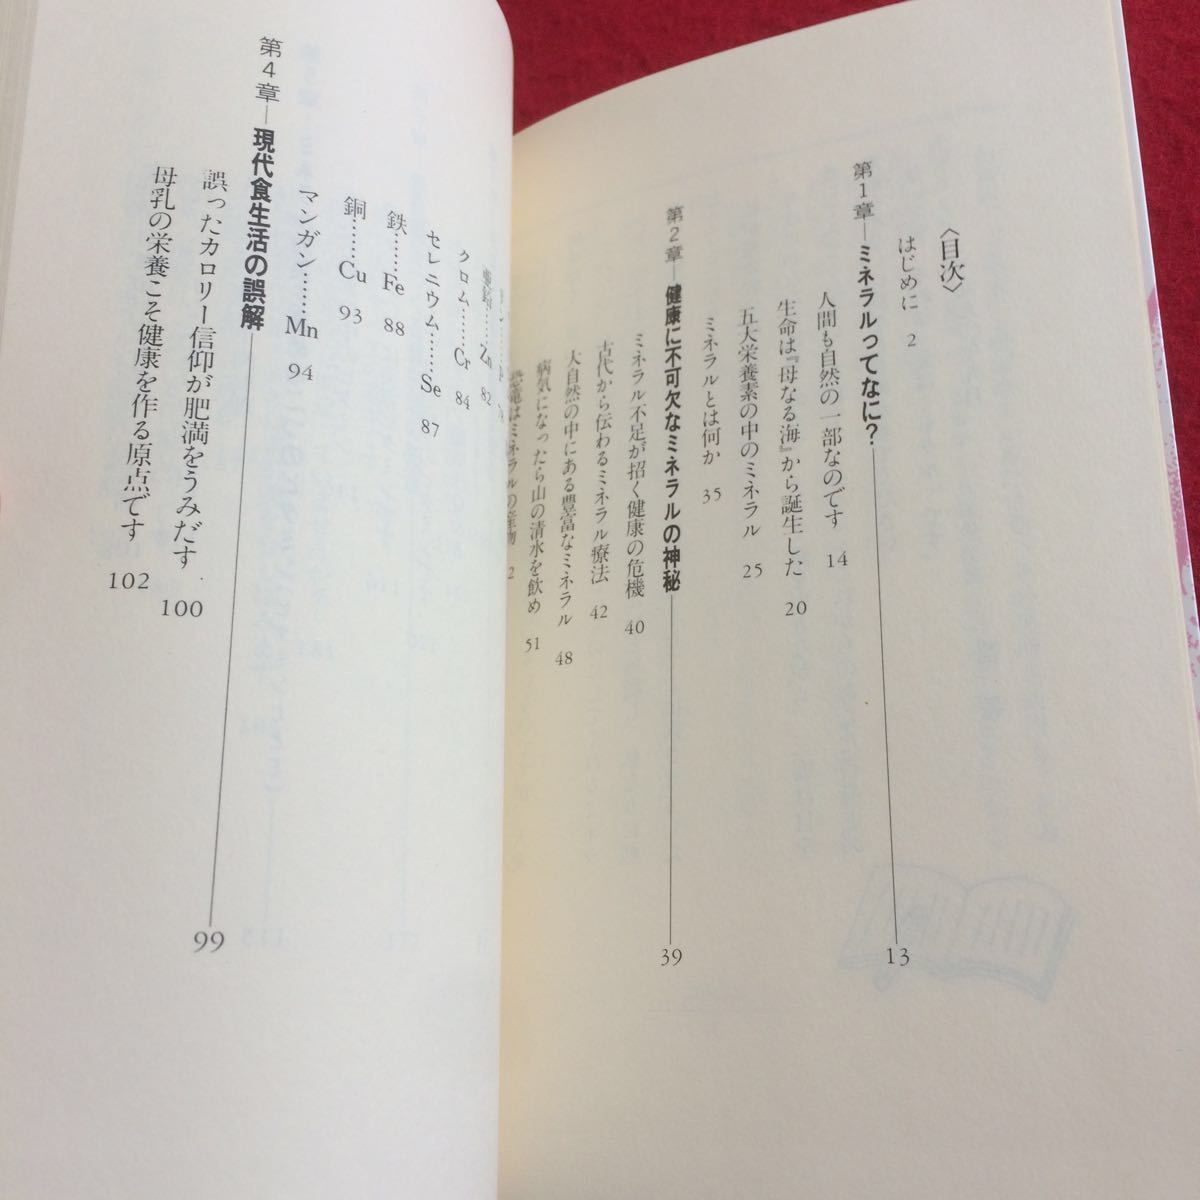 〈目次〉
はじめに 2
第1章―ミネラルってなに?――13
人間も自然の一部なのです 14
生命は『母なる海』から誕生した 20
五大栄養素の中のミネラル 25
ミネラルとは何か 35
第2章―健康に不可欠なミネラルの神秘――39
ミネラル不足が招く健康の危機 40
古代から伝わるミネラル療法 42
大自然の中にある豊富なミネラル 48
病気になったら山の清水を飲め 51
恐竜はミネラルの産物
亜鉛……Zn 82
クロム……Cr 84
セレニウム……Se 87
鉄……Fe 88
銅……Cu 93
マンガン……Mn 94
第4章―現代食生活の誤解――99
誤ったカロリー信仰が肥満をうみだす 100
母乳の栄養こそ健康を作る原点です 102